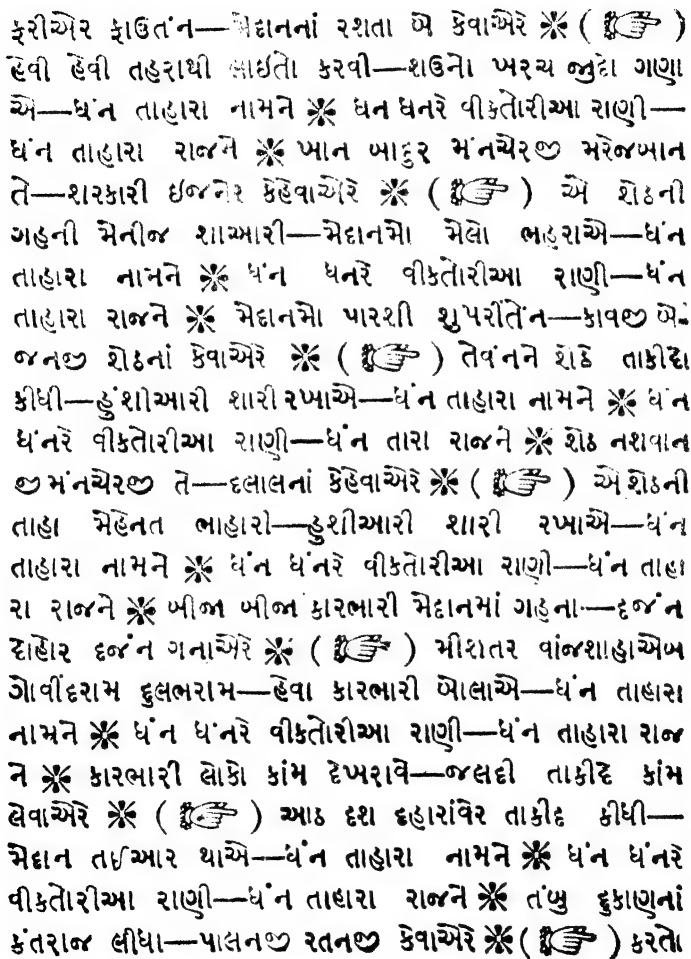 ફરીએર ફાઉતંન—મેદાનનાં રશતા બે કેવાએરે ❋ (☞)
હેવી હેવી તહરાથી લાઇતો કરવી—શઉનો ખરચ જુદો ગણા
એ—ધંન તાહારા નામને ❋ ધન ધનરે વીકતોરીઆ રાણી—
ધંન તાહારા રાજને ❋ ખાન બાદુર મંનચેરજી મરેજખાન
તે—શરકારી ઇજનેર કેહેવાએરે ❋ (☞) એ શેઠની
ગહની મેનીજ શાઆરી—મેદાનમો મેલો ભહરાએ—ધંન
તાહારા નામને ❋ ધંન ધનરે વીકતોરીઆ રાણી—ધંન
તાહારા રાજને ❋ મેદાનમો પારશી શુપરીંતેંન—કાવજી બે-
જનજી શેઠનાં કેવાએરે ❋ (☞) તેવંનને શેઠે તાકીદો
કીધી—હુંશીઆરી શારી રખાએ—ધંન તાહારા નામને ❋ ધંન
ધંનરે વીકતોરીઆ રાણી—ધંન તારા રાજને ❋ શેઠ નશવાન
જી મંનચેરજી તે—દલાલનાં કેહેવાએરે ❋ (☞) એ શેઠની
તાહા મેહેનત ભાહારો—હુશીઆરી શારી રખાએ—ધંન
તાહારા નામને ❋ ધંન ધંનરે વીકતોરીઆ રાણી—ધંન તાહા
રા રાજને ❋ બીજા બીજા કારભારી મેદાનમાં ગહના—દજંન
દાહોર દજંન ગનાએરે ❋ (☞) મીશતર વાંજશાહાએબ
ગોવીંદરામ દુલભરામ—હેવા કારભારી બોલાએ—ધંન તાહારા
નામને ❋ ધંન ધંનરે વીકતોરીઆ રાણી—ધંન તાહારા રાજ
ને ❋ કારભારી લોકો કાંમ દેખરાવે—જલદી તાકીદે કાંમ
લેવાએરે ❋ (☞) આઠ દશ દહારાંવેર તાકીદ કીધી—
મેદાન તઈઆર થાએ—ધંન તાહારા નામને ❋ ધંન ધંનરે
વીકતોરીઆ રાણી—ધંન તાહારા રાજને ❋ તંબુ દુકાણનાં
કંતરાજ લીધા—પાલનજી રતનજી કેવાએરે ❋ (☞) કરતો